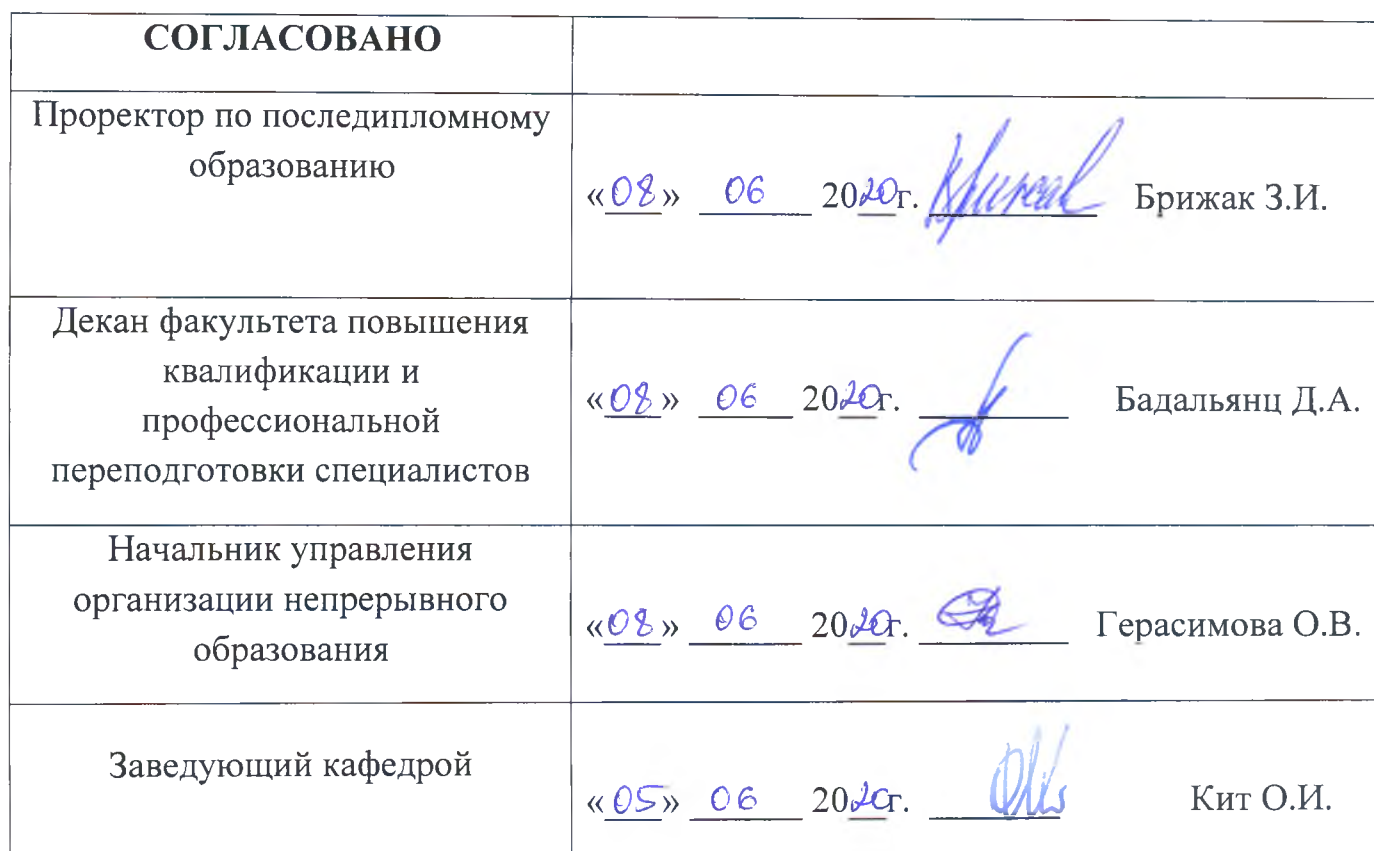 СОГЛАСОВАНО
Проректор по последипломному
образованию
«08» 06 2020г. Брижак З.И.
Декан факультета повышения
квалификации и
профессиональной
переподготовки специалистов
«08» 06 2020г. Бадальянц Д.А.
Начальник управления
организации непрерывного
образования
«08» 06 2020г. Герасимова О.В.
Заведующий кафедрой
«05» 06 2020г. Кит О.И.